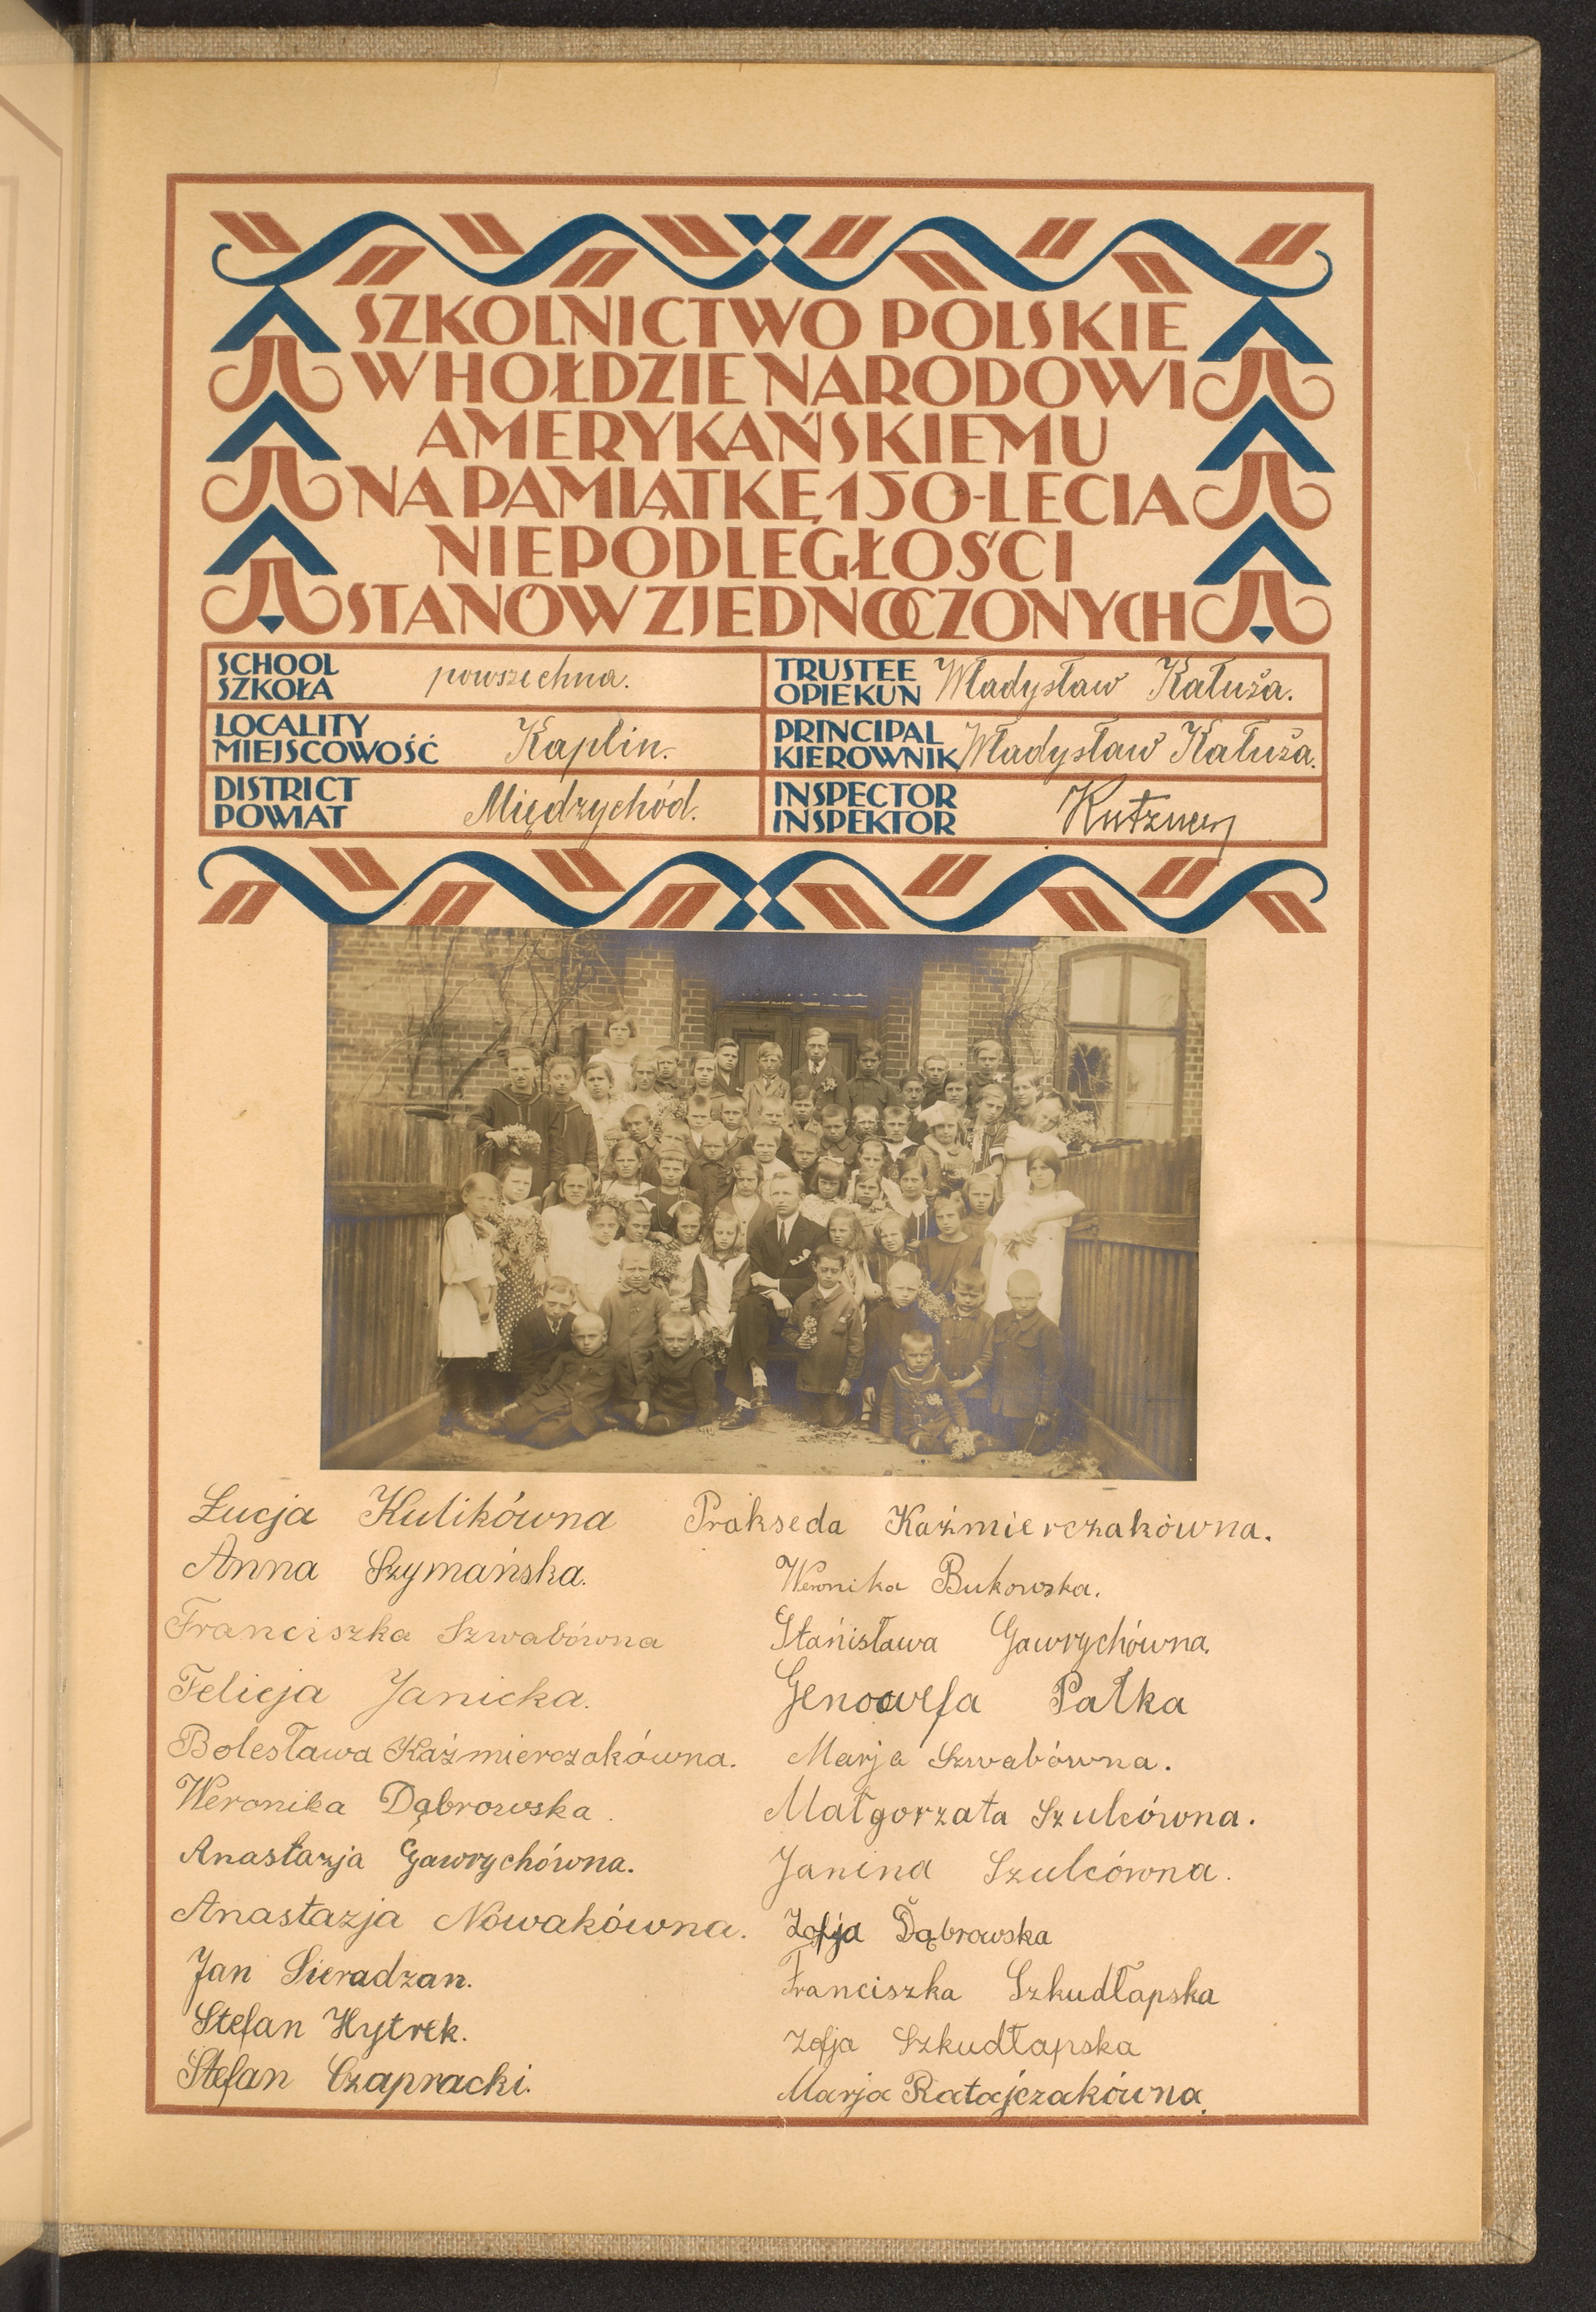 SZKOLNICTWO POLSKIE
W HOŁDZIE NARODOWI
AMERYKAŃSKIEMU
NA PAMIĄTKĘ 150-LECIA
NIEPODLEGŁOŚCI
STANÓW ZJEDNOCZONYCH
SCHOOL
SZKOŁA powszechna.
TRUSTEE
OPIEKUN Władysław Kałuża.
LOCALITY
MIEJSCOWOŚĆ Kaplin.
PRINCIPAL
KIEROWNIK Władysław Kałuża.
DISTRICT
POWIAT Międzychód.
INSPECTOR
INSPEKTOR Kutzner
Łucja Kulikówna Prakseda Kaźmierczakówna.
Anna Szymańska. Weronika Bukowska.
Franciszka Szwabówna Stańisława Gawrychówna.
Felicja Janicka. Genowefa Pałka
Bolesława Kaźmierczakówna. Marja Szwabówna.
Weronika Dąbrowska. Małgorzata Szulcówna.
Anastazja Gawrychówna. Janina Szulcówna.
Anastazja Nowakówna. Zofja Dąbrowska
Jan Sieradzan. Franciszka Szkudłapska
Stefan Hytrek. Zofja Szkudłapska
Stefan Czapracki. Marja Ratajczakówna.